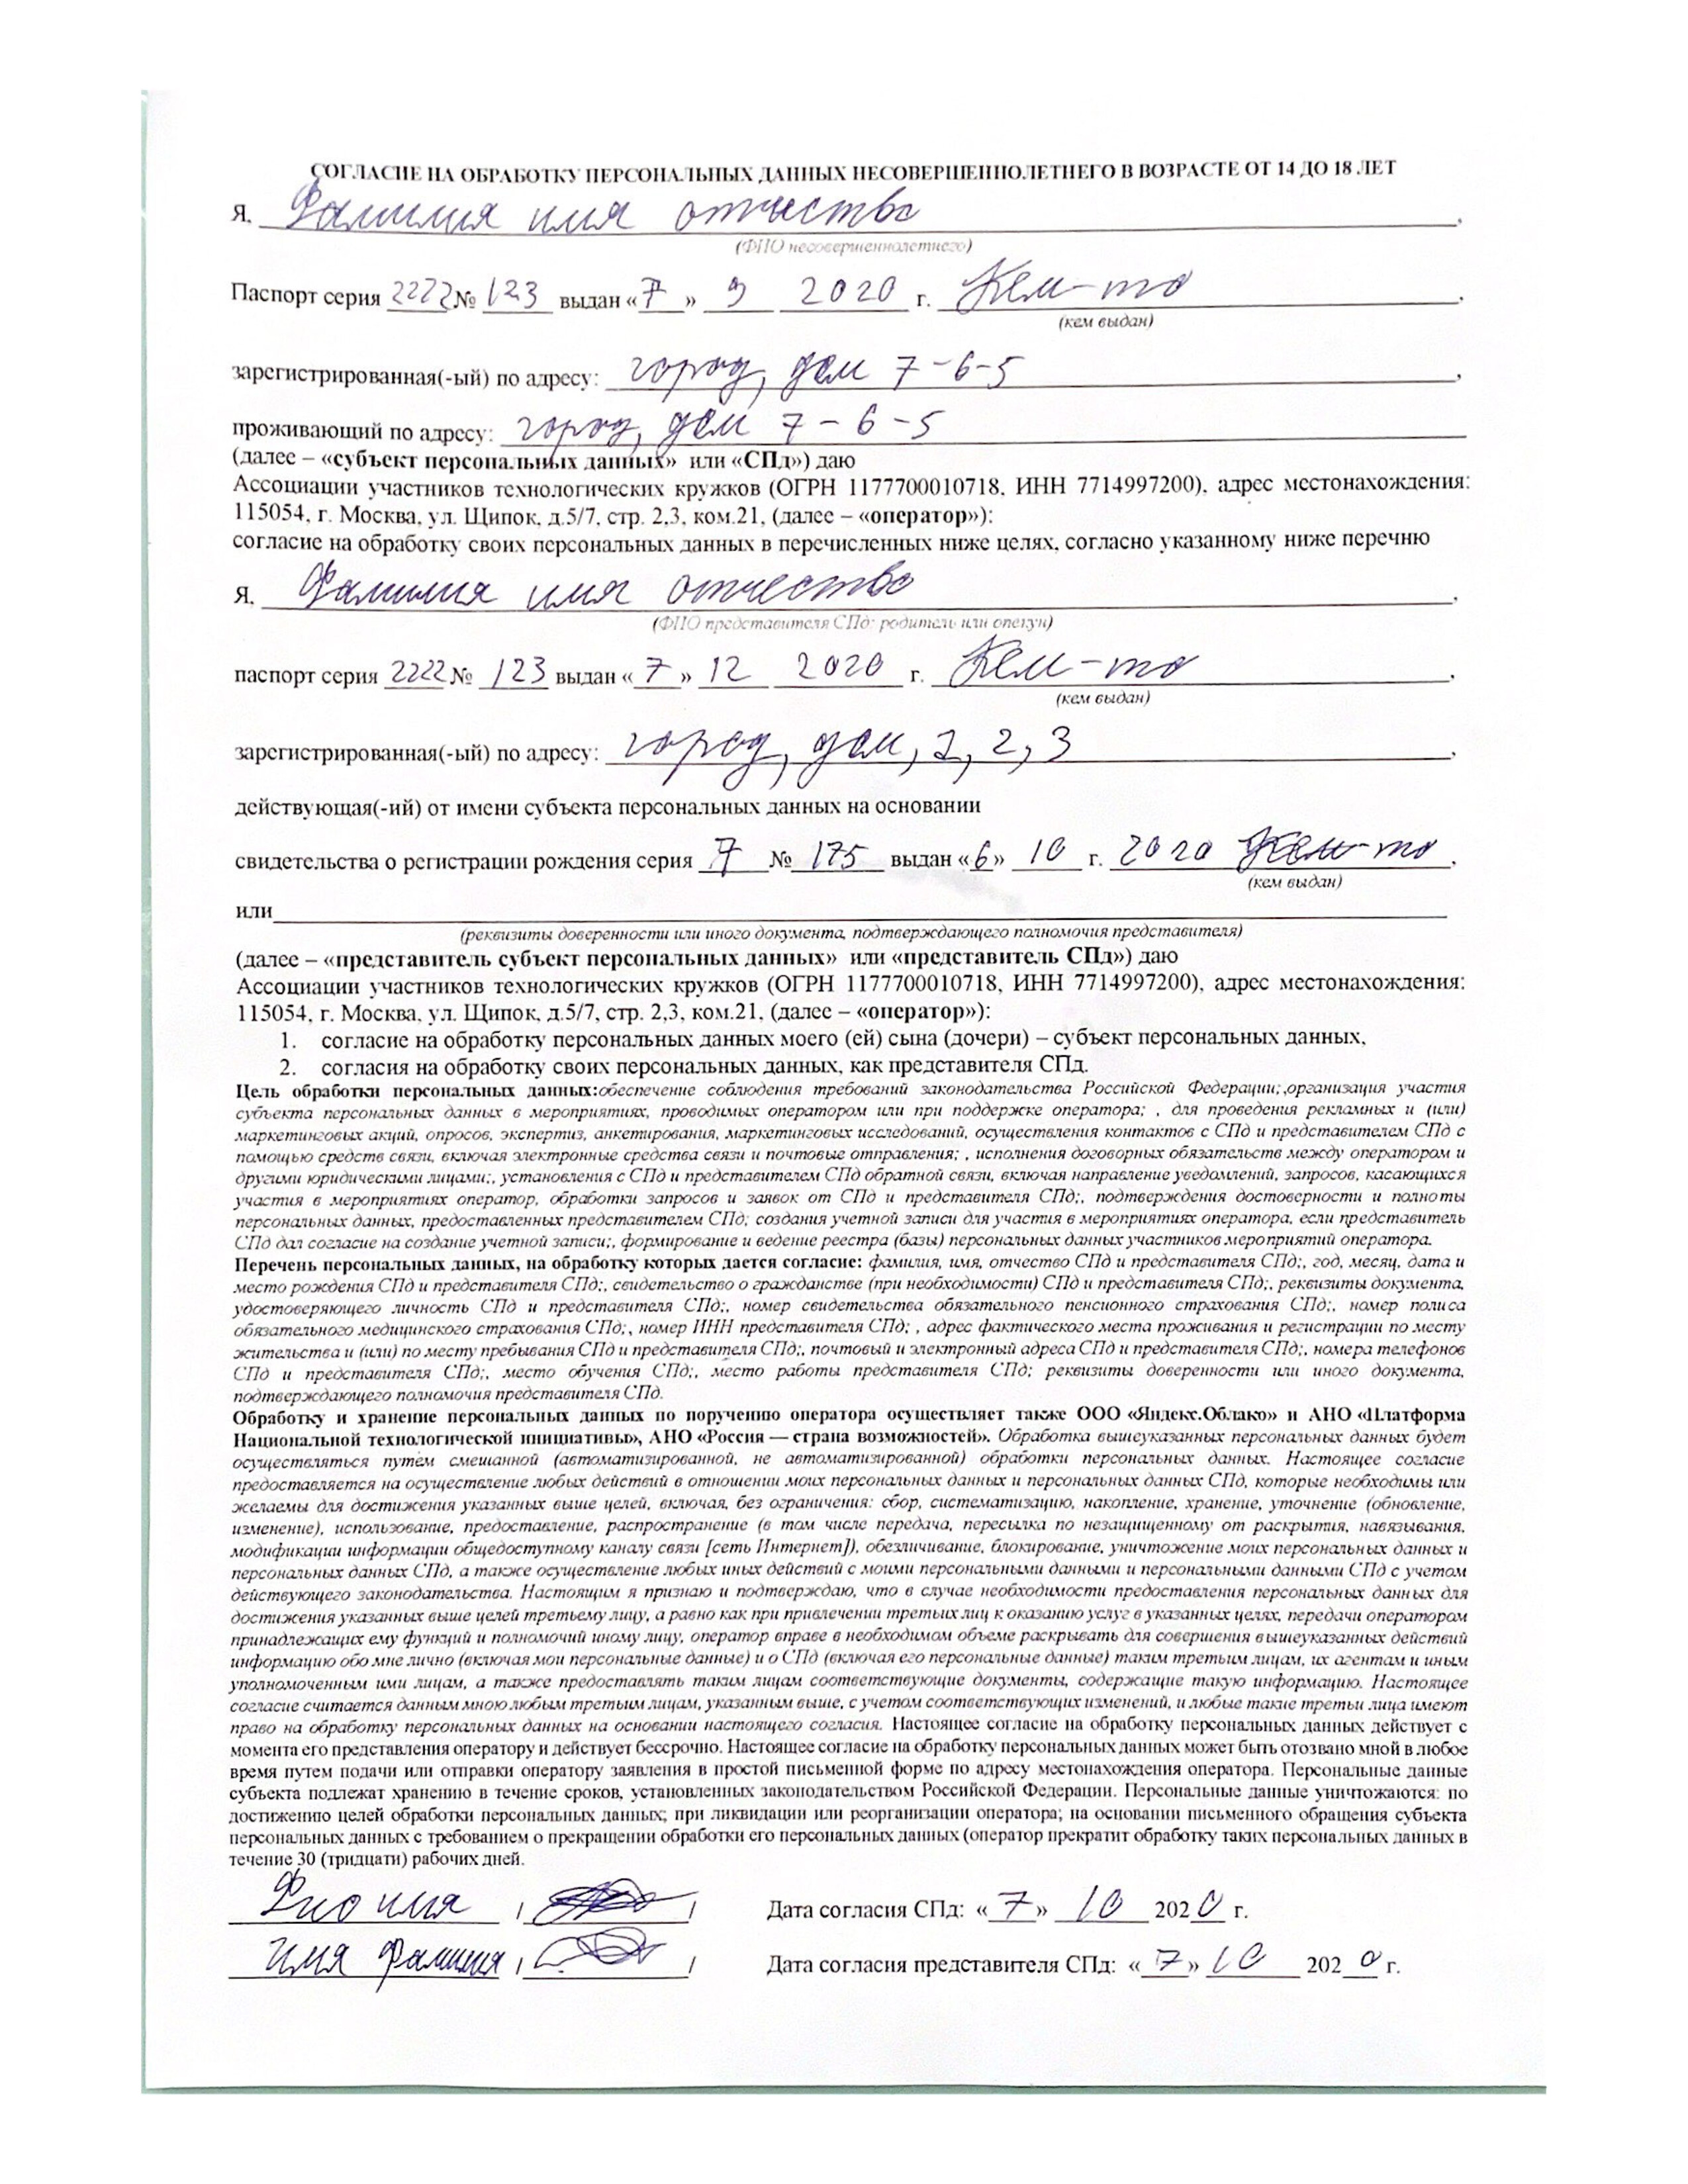 СОГЛАСИЕ НА ОБРАБОТКУ ПЕРСОНАЛЬНЫХ ДАННЫХ НЕСОВЕРШЕННОЛЕТНЕГО В ВОЗРАСТЕ ОТ 14 ДО 18 ЛЕТ
Я, Фамилия имя отчество,
(ФИО несовершеннолетнего)
Паспорт серия 2222 № 123 выдан «7» 9 2020 г. Кем-то,
(кем выдан)
зарегистрированная(-ый) по адресу: город, дом 7-6-5,
проживающий по адресу: город, дом 7-6-5
(далее – «субъект персональных данных» или «СПд») даю
Ассоциации участников технологических кружков (ОГРН 1177700010718, ИНН 7714997200), адрес местонахождения:
115054, г. Москва, ул. Щипок, д.5/7, стр. 2,3, ком.21, (далее – «оператор»):
согласие на обработку своих персональных данных в перечисленных ниже целях, согласно указанному ниже перечню
Я, Фамилия имя отчество,
(ФИО представителя СПд: родитель или опекун)
паспорт серия 2222 № 123 выдан «7» 12 2020 г. Кем-то,
(кем выдан)
зарегистрированная(-ый) по адресу: город, дом, 2, 2, 3,
действующая(-ий) от имени субъекта персональных данных на основании
свидетельства о регистрации рождения серия 7 № 175 выдан «6» 10 г. 2020 Кем-то,
(кем выдан)
или
(реквизиты доверенности или иного документа, подтверждающего полномочия представителя)
(далее – «представитель субъект персональных данных» или «представитель СПд») даю
Ассоциации участников технологических кружков (ОГРН 1177700010718, ИНН 7714997200), адрес местонахождения:
115054, г. Москва, ул. Щипок, д.5/7, стр. 2,3, ком.21, (далее – «оператор»):
1. согласие на обработку персональных данных моего (ей) сына (дочери) – субъект персональных данных,
2. согласия на обработку своих персональных данных, как представителя СПд.
Цель обработки персональных данных:обеспечение соблюдения требований законодательства Российской Федерации;,организация участия
субъекта персональных данных в мероприятиях, проводимых оператором или при поддержке оператора; , для проведения рекламных и (или)
маркетинговых акций, опросов, экспертиз, анкетирования, маркетинговых исследований, осуществления контактов с СПд и представителем СПд с
помощью средств связи, включая электронные средства связи и почтовые отправления; , исполнения договорных обязательств между оператором и
другими юридическими лицами;, установления с СПд и представителем СПд обратной связи, включая направление уведомлений, запросов, касающихся
участия в мероприятиях оператор, обработки запросов и заявок от СПд и представителя СПд;, подтверждения достоверности и полноты
персональных данных, предоставленных представителем СПд; создания учетной записи для участия в мероприятиях оператора, если представитель
СПд дал согласие на создание учетной записи;, формирование и ведение реестра (базы) персональных данных участников мероприятий оператора.
Перечень персональных данных, на обработку которых дается согласие: фамилия, имя, отчество СПд и представителя СПд;, год, месяц, дата и
место рождения СПд и представителя СПд;, свидетельство о гражданстве (при необходимости) СПд и представителя СПд;, реквизиты документа,
удостоверяющего личность СПд и представителя СПд;, номер свидетельства обязательного пенсионного страхования СПд;, номер полиса
обязательного медицинского страхования СПд;, номер ИНН представителя СПд; , адрес фактического места проживания и регистрации по месту
жительства и (или) по месту пребывания СПд и представителя СПд;, почтовый и электронный адреса СПд и представителя СПд;, номера телефонов
СПд и представителя СПд;, место обучения СПд;, место работы представителя СПд; реквизиты доверенности или иного документа,
подтверждающего полномочия представителя СПд.
Обработку и хранение персональных данных по поручению оператора осуществляет также ООО «Яндекс.Облако» и АНО «Платформа
Национальной технологической инициативы», АНО «Россия — страна возможностей». Обработка вышеуказанных персональных данных будет
осуществляться путем смешанной (автоматизированной, не автоматизированной) обработки персональных данных. Настоящее согласие
предоставляется на осуществление любых действий в отношении моих персональных данных и персональных данных СПд, которые необходимы или
желаемы для достижения указанных выше целей, включая, без ограничения: сбор, систематизацию, накопление, хранение, уточнение (обновление,
изменение), использование, предоставление, распространение (в том числе передача, пересылка по незащищенному от раскрытия, навязывания,
модификации информации общедоступному каналу связи [сеть Интернет]), обезличивание, блокирование, уничтожение моих персональных данных и
персональных данных СПд, а также осуществление любых иных действий с моими персональными данными и персональными данными СПд с учетом
действующего законодательства. Настоящим я признаю и подтверждаю, что в случае необходимости предоставления персональных данных для
достижения указанных выше целей третьему лицу, а равно как при привлечении третьих лиц к оказанию услуг в указанных целях, передачи оператором
принадлежащих ему функций и полномочий иному лицу, оператор вправе в необходимом объеме раскрывать для совершения вышеуказанных действий
информацию обо мне лично (включая мои персональные данные) и о СПд (включая его персональные данные) таким третьим лицам, их агентам и иным
уполномоченным ими лицам, а также предоставлять таким лицам соответствующие документы, содержащие такую информацию. Настоящее
согласие считается данным мною любым третьим лицам, указанным выше, с учетом соответствующих изменений, и любые такие третьи лица имеют
право на обработку персональных данных на основании настоящего согласия. Настоящее согласие на обработку персональных данных действует с
момента его представления оператору и действует бессрочно. Настоящее согласие на обработку персональных данных может быть отозвано мной в любое
время путем подачи или отправки оператору заявления в простой письменной форме по адресу местонахождения оператора. Персональные данные
субъекта подлежат хранению в течение сроков, установленных законодательством Российской Федерации. Персональные данные уничтожаются: по
достижению целей обработки персональных данных; при ликвидации или реорганизации оператора; на основании письменного обращения субъекта
персональных данных с требованием о прекращении обработки его персональных данных (оператор прекратит обработку таких персональных данных в
течение 30 (тридцати) рабочих дней.
Фио имя / / Дата согласия СПд: «7» 10 2020 г.
Имя Фамилия / / Дата согласия представителя СПд: «7» 10 2020 г.